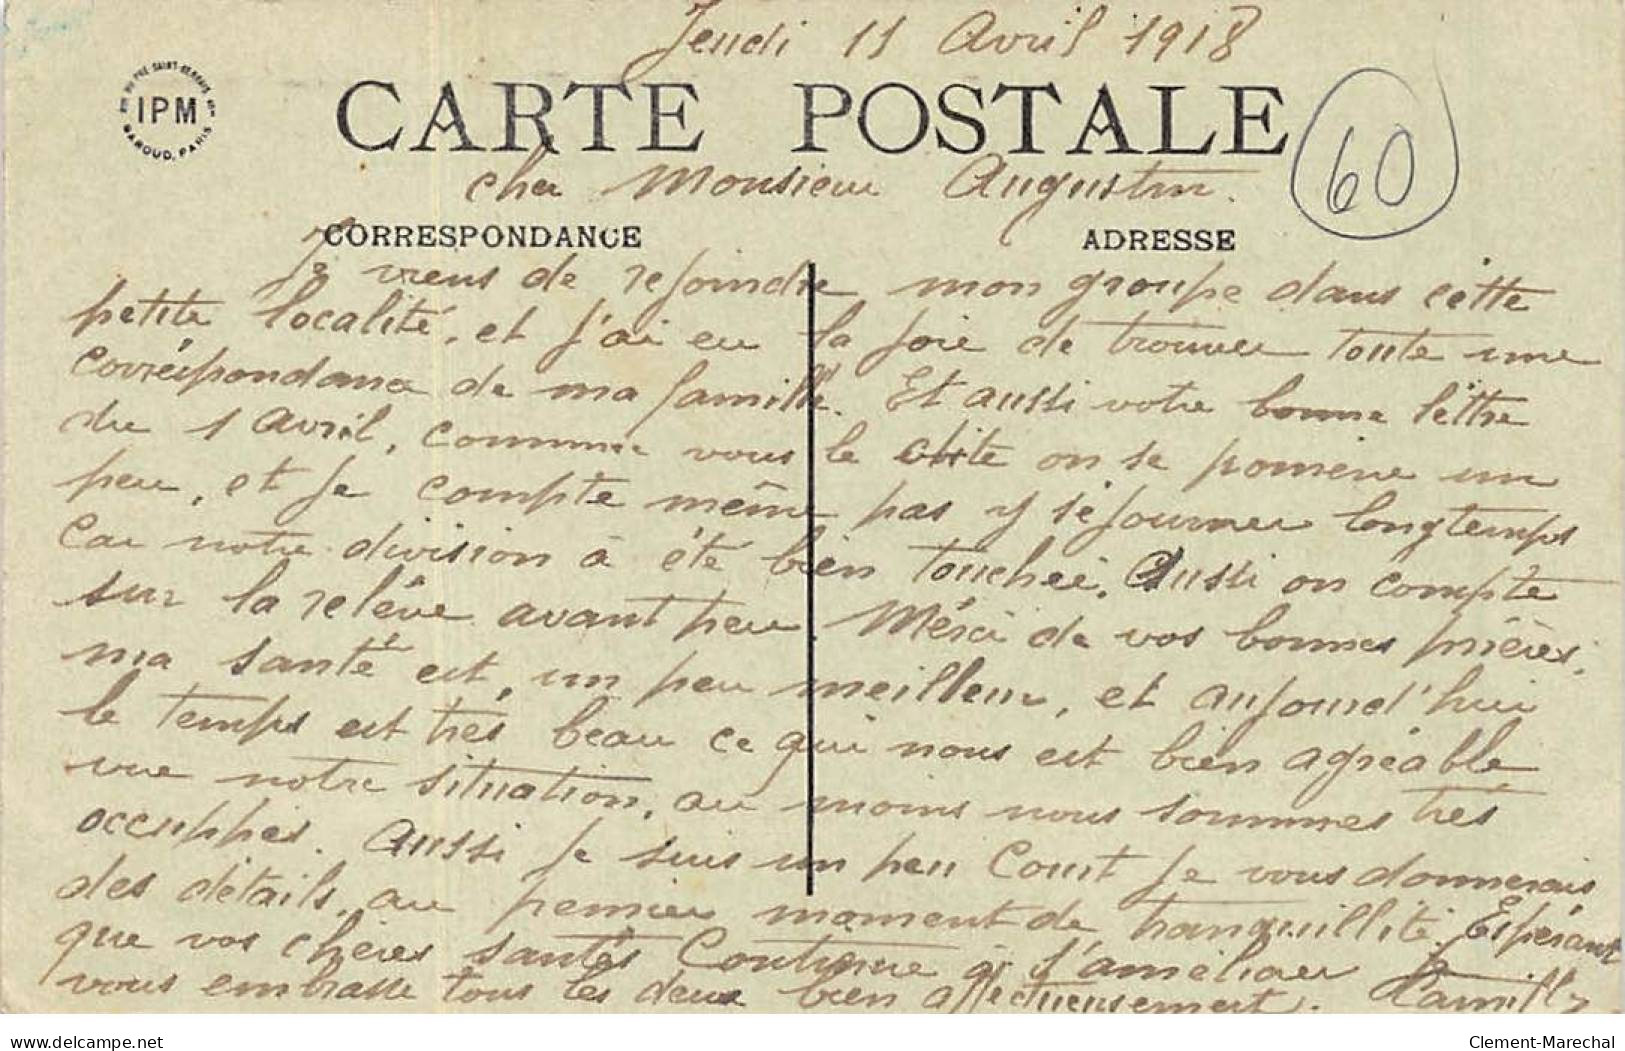 Jeudi 11 Avril 1918
IPM
CARTE POSTALE
60
cher Monsieur Augustin.
CORRESPONDANCE
ADRESSE
Je viens de rejoindre mon groupe dans cétte
petite localité, et j'ai eu la joie de trouver toute une
corréspondance de ma famille. Et aussi votre bonne léttre
du 1 avril, comme vous le dite on se pomène un
peu, et je compte même pas y séjourner longtemps
Car notre division à été bien touchée. Aussi on compte
sur la relêve avant peu. Mérci de vos bonnes prières,
ma santé est, un peu meilleur, et aujourd'hui
le temps est très beau ce qui nous est bien agréable
vue notre situation, au moins nous sommes très
occuppés. Aussi je suis un peu Court je vous donnerais
des détails, au premier moment de tranquillité. Espérant
que vos chères santés Continue à s'améliorer Je
vous embrasse tous les deux bien affectueusement. Camille
delcampe.net
Clement-Marechal